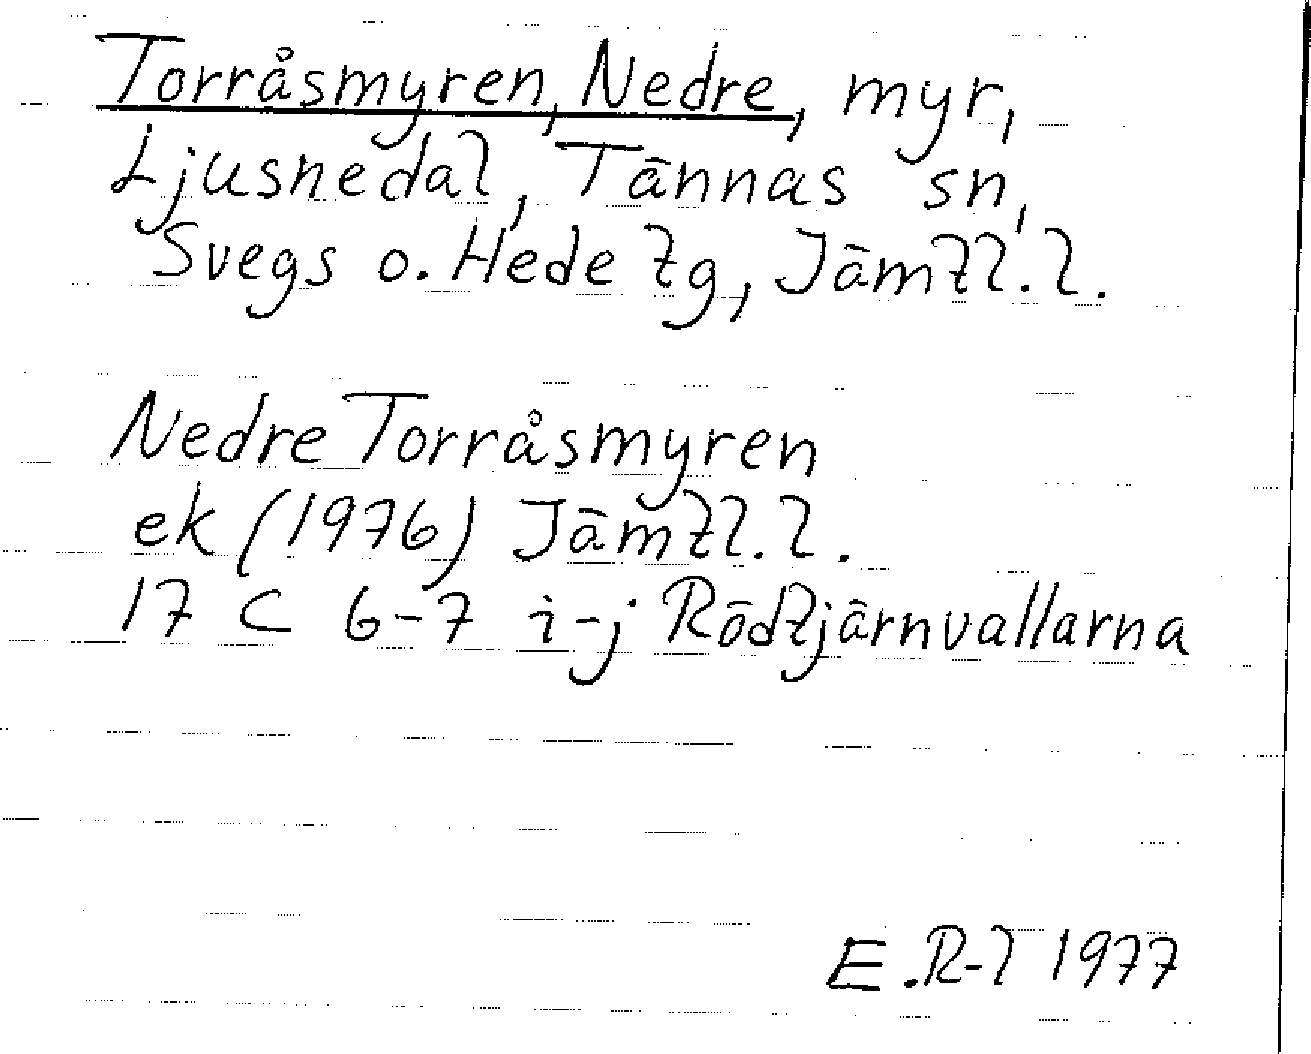 Torråsmyren, Nedre, myr,
Ljusnedal, Tännäs sn,
Svegs o. Hede tg, Jämtl. l.
Nedre Torråsmyren
ek (1976) Jämtl. l.
17 C 6-7 i-j Rödtjärnvallarna
E.R-l 1977